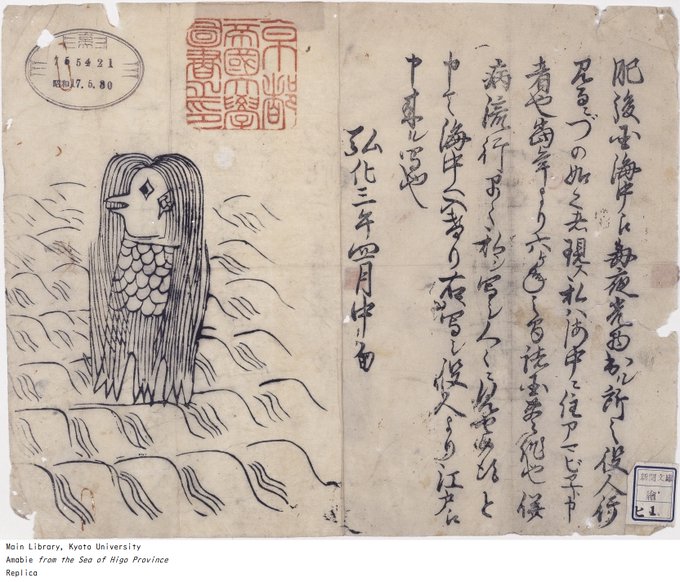 肥後国海中江毎夜光物出ル所之役人行
見るニづの如く者現ス私ハ海中ニ住アマビヱト申
者也当年より六ケ年之間諸国豊作也併
病流行早々私ヲ写シ人々ニ見せ候得と
申て海中へ入けり右写シ役人より江戸江
申来ル写也
弘化三年四月中旬
京都
帝國大學
圖書之印
165421
昭和17.5.30
新聞文庫
繪
ヒ 1
Main Library, Kyoto University
Amabie from the Sea of Higo Province
Replica